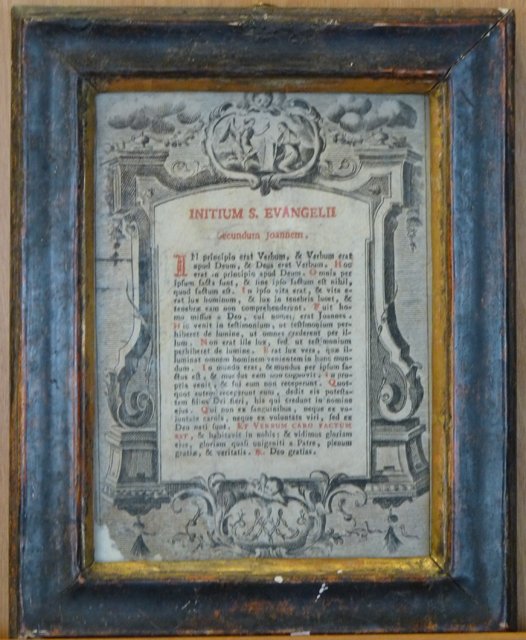 INITIUM S. EVANGELII
secundum Joannem.
IN principio erat Verbum, & Verbum erat
apud Deum, & Deus erat Verbum. Hoc
erat in principio apud Deum. Omnia per
ipsum facta sunt, & sine ipso factum est nihil,
quod factum est. In ipso vita erat, & vita e-
rat lux hominum, & lux in tenebris lucet, &
tenebræ eam non comprehenderunt. Fuit ho-
mo missus a Deo, cui nomen erat Joannes.
Hic venit in testimonium, ut testimonium per-
hiberet de lumine, ut omnes crederent per il-
lum. Non erat ille lux, sed ut testimonium
perhiberet de lumine. Erat lux vera, quæ il-
luminat omnem hominem venientem in hunc mun-
dum. In mundo erat, & mundus per ipsum fa-
ctus est, & mundus eum non cognovit. In pro-
pria venit, & sui eum non receperunt. Quot-
quot autem receperunt eum, dedit eis potesta-
tem filios Dei fieri, his qui credunt in nomine
ejus. Qui non ex sanguinibus, neque ex vo-
luntate carnis, neque ex voluntate viri, sed ex
Deo nati sunt. ET VERBUM CARO FACTUM
EST, & habitavit in nobis: & vidimus gloriam
ejus, gloriam quasi unigeniti a Patre, plenum
gratiæ, & veritatis. ℟. Deo gratias.